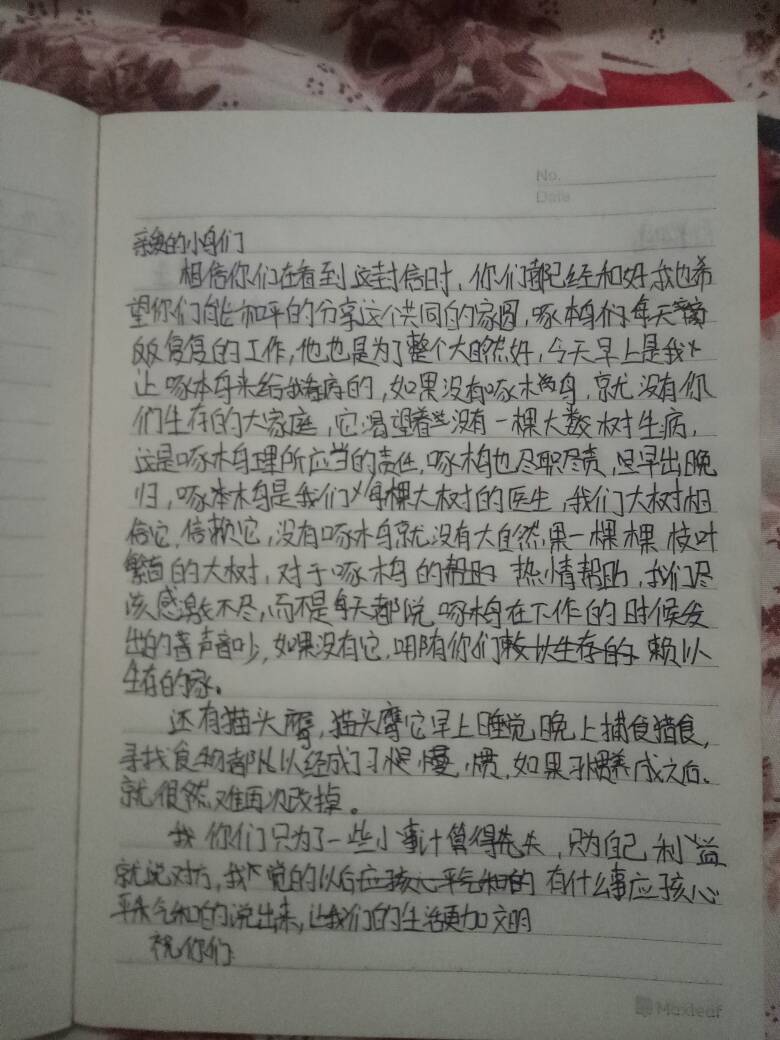 No.
Date
亲爱的小鸟们
相信你们在看到这封信时，你们都已经和好，我也希
望你们能和平的分享这个共同的家园，啄木鸟们每天
反反复复的工作，他也是为了整个大自然好，今天早上是我
让啄木鸟来给我看病的，如果没有啄木鸟，就没有你
们生存的大家庭，它渴望着没有一棵大树生病，
这是啄木鸟理所应当的责任，啄木鸟也尽职尽责，早出晚
归，啄木鸟是我们每棵大树的医生，我们大树相
信它，信赖它，没有啄木鸟就没有大自然，一棵棵枝叶
繁茂的大树，对于啄木鸟的热情帮助，我们
该感激不尽，而不是每天都说啄木鸟在工作的时候发
出的声音吵，如果没有它，哪有你们赖以
生存的家。
还有猫头鹰，猫头鹰它早上睡觉晚上捕食猎食，
寻找食物都已经成了习惯，如果习惯养成之后、
就很难再次改掉。
你们只为了一些小事计算得失，只为自己利益
就说对方，我觉的以后有什么事应孩心
平气和的说出来，让我们的生活更加文明
祝你们
Maxleaf